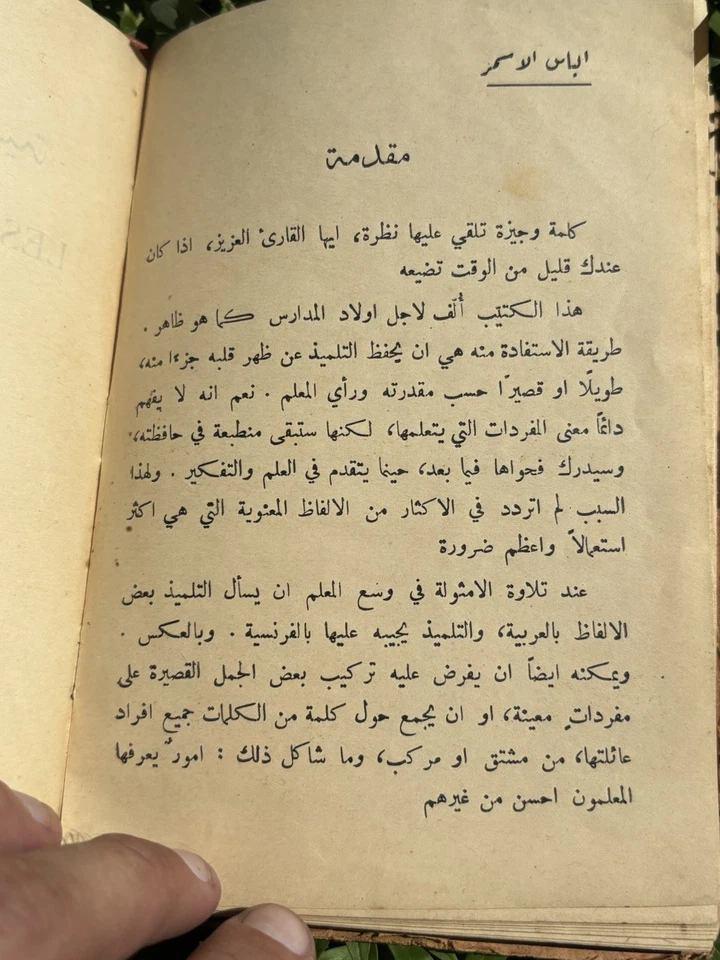 الياس الاسمر
مقدمة
كلمة وجيزة تلقي عليها نظرة، ايها القارئ العزيز، اذا كان
عندك قليل من الوقت تضيعه
هذا الكتيّب أُلّف لاجل اولاد المدارس كما هو ظاهر .
طريقة الاستفادة منه هي ان يحفظ التلميذ عن ظهر قلبه جزءا منه،
طويلًا او قصيرًا حسب مقدرته ورأي المعلم . نعم انه لا يفهم
دائمًا معنى المفردات التي يتعلمها، لكنها ستبقى منطبعة في حافظته،
وسيدرك فحواها فيما بعد، حينما يتقدم في العلم والتفكير . ولهذا
السبب لم اتردد في الاكثار من الالفاظ المعنوية التي هي اكثر
استعمالاً واعظم ضرورة
عند تلاوة الامثولة في وسع المعلم ان يسأل التلميذ بعض
الالفاظ بالعربية، والتلميذ يجيبه عليها بالفرنسية . وبالعكس .
ويمكنه ايضاً ان يفرض عليه تركيب بعض الجمل القصيرة على
مفرداتٍ معينة، او ان يجمع حول كلمة من الكلمات جميع افراد
عائلتها، من مشتق او مركب، وما شاكل ذلك : امورٌ يعرفها
المعلمون احسن من غيرهم